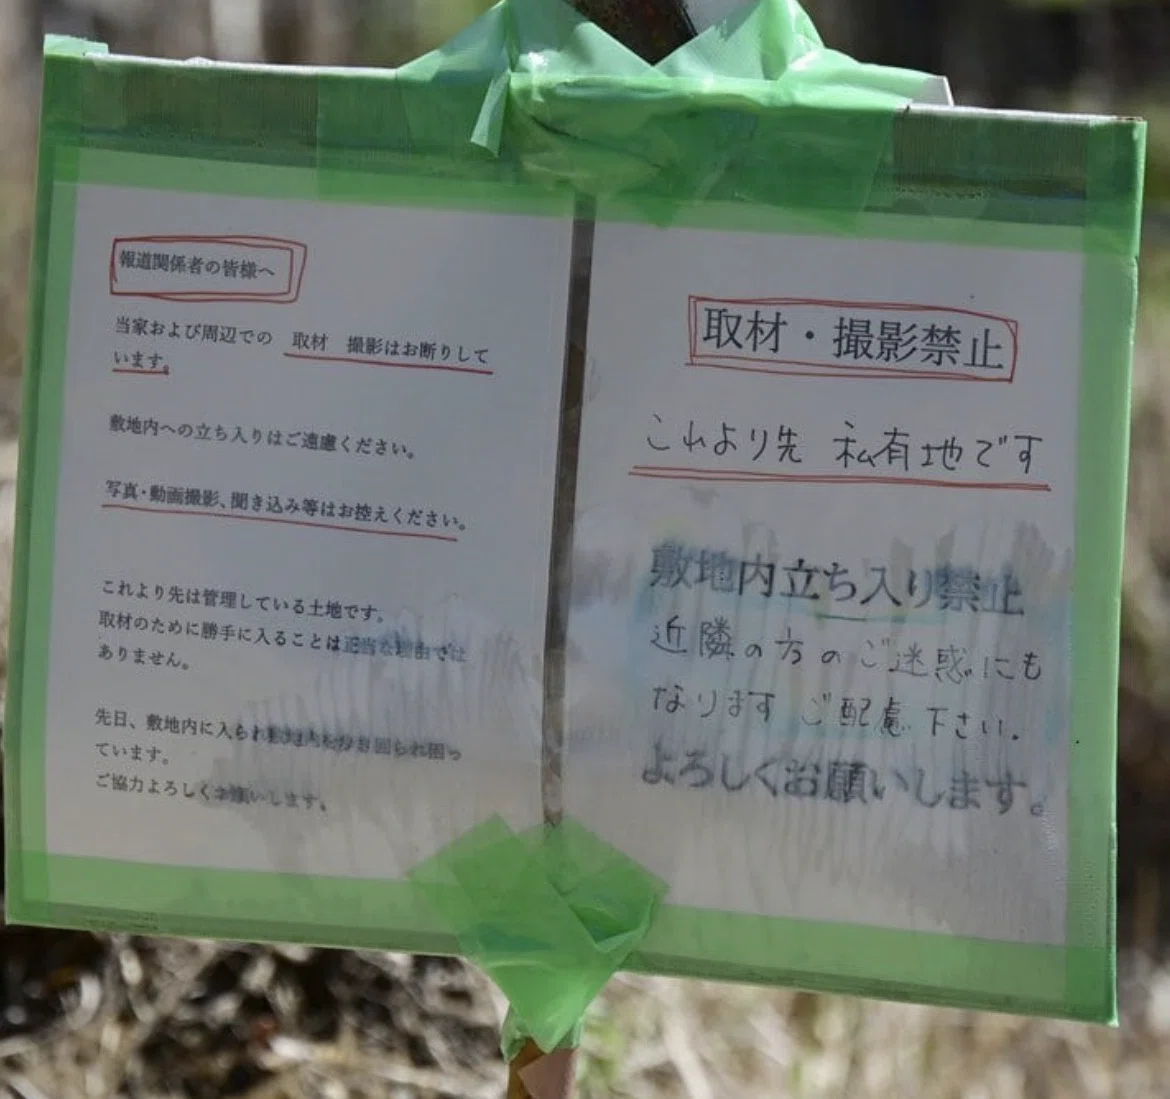 報道関係者の皆様へ
当家および周辺での 取材 撮影はお断りして
います。
敷地内への立ち入りはご遠慮ください。
写真・動画撮影、聞き込み等はお控えください。
これより先は管理している土地です。
取材のために勝手に入ることは正当な理由では
ありません。
先日、敷地内に入られ られ困っ
ています。
ご協力よろしくお願いします。
取材・撮影禁止
これより先 私有地です
敷地内立ち入り禁止
近隣の方のご迷惑にも
なります ご配慮下さい.
よろしくお願いします。